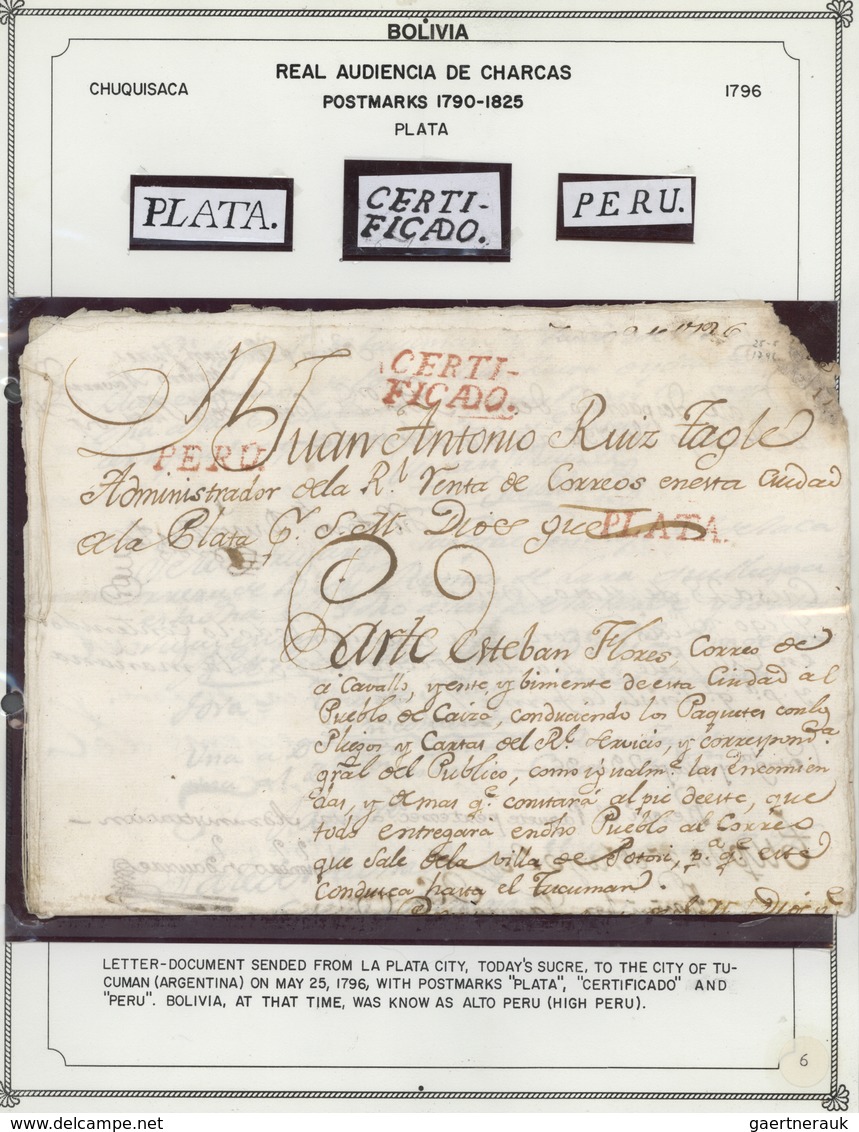 BOLIVIA
REAL AUDIENCIA DE CHARCAS
CHUQUISACA
1796
POSTMARKS 1790-1825
PLATA
PLATA.
CERTI-
FICADO.
PERU.
1796
25-5
1796
CERTI-
FICADO.
Juan Antonio Ruiz Tagle
PERU.
Administrador dela Rl. Venta de Correos enesta Ciudad
dela Plata G. S. M. Dios gue
PLATA.
Parte Esteban Flores, Correo de
a Cavallo, yente, y biniente deesta Ciudad al
Pueblo de Caiza, conduciendo los Paquetes conlos
Pliegos y Cartas del Rl. Servicio, y correspond.a
gral del Publico, como igualm.e las Encomien
das, y demas q.e constará al pie deeste, que
todo entregará endho Pueblo al Correo
que sale dela villa de Potosi, p.a q.e este
conduzca hasta el Tucuman.
LETTER-DOCUMENT SENDED FROM LA PLATA CITY, TODAY'S SUCRE, TO THE CITY OF TU-
CUMAN (ARGENTINA) ON MAY 25, 1796, WITH POSTMARKS "PLATA", "CERTIFICADO" AND
"PERU". BOLIVIA, AT THAT TIME, WAS KNOW AS ALTO PERU (HIGH PERU).
6
gaertnerauk